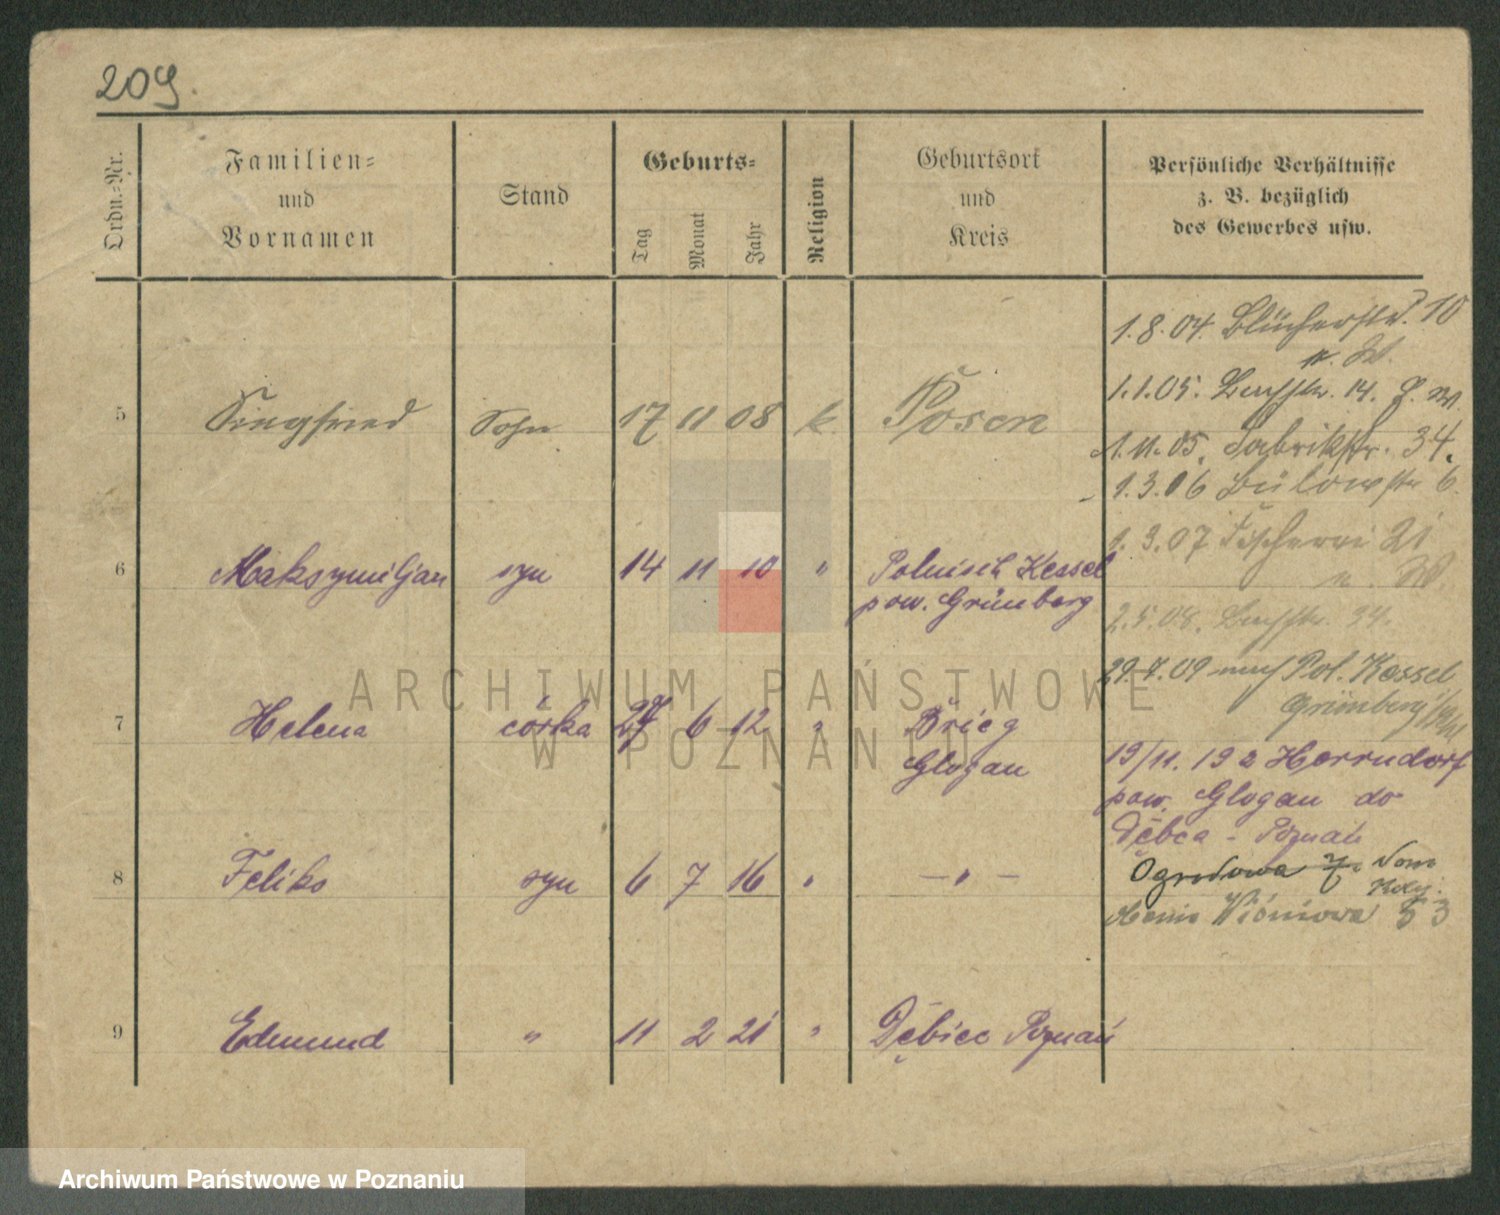 209.
Ordn.-Nr.
Familien-
und
Vornamen
Stand
Geburts-
Tag
Monat
Jahr
Religion
Geburtsort
und
Kreis
Persönliche Verhältnisse
z. B. bezüglich
des Gewerbes usw.
1.8.04. Blücherstr. 10
n. W.
1.1.05. Bachstr. 14.
1.11.05. Fabrikstr. 34.
1.3.06 Bülowstr 6.
1.3.07 Fischerei 21
n. W.
2.5.08. Bachstr. 34.
29.7.09 nach Pol. Kessel
Grünberg
19/11. 192 Herrndorf
pow. Glogau do
Dębca - Poznań
Ogrodowa 7. dom
Kolej.
Wiśniowa 53
5 Siegfried Sohn 17 11 08 k. Posen
6 Maksymiljan syn 14 11 10 " Polnisch Kessel
pow. Grünberg
7 Helena córka 27 6 12 " Brieg
Glogau
8 Feliks syn 6 7 16 " — " —
9 Edmund " 11 2 21 " Dębiec Poznań
ARCHIWUM PAŃSTWOWE
W POZNANIU
Archiwum Państwowe w Poznaniu